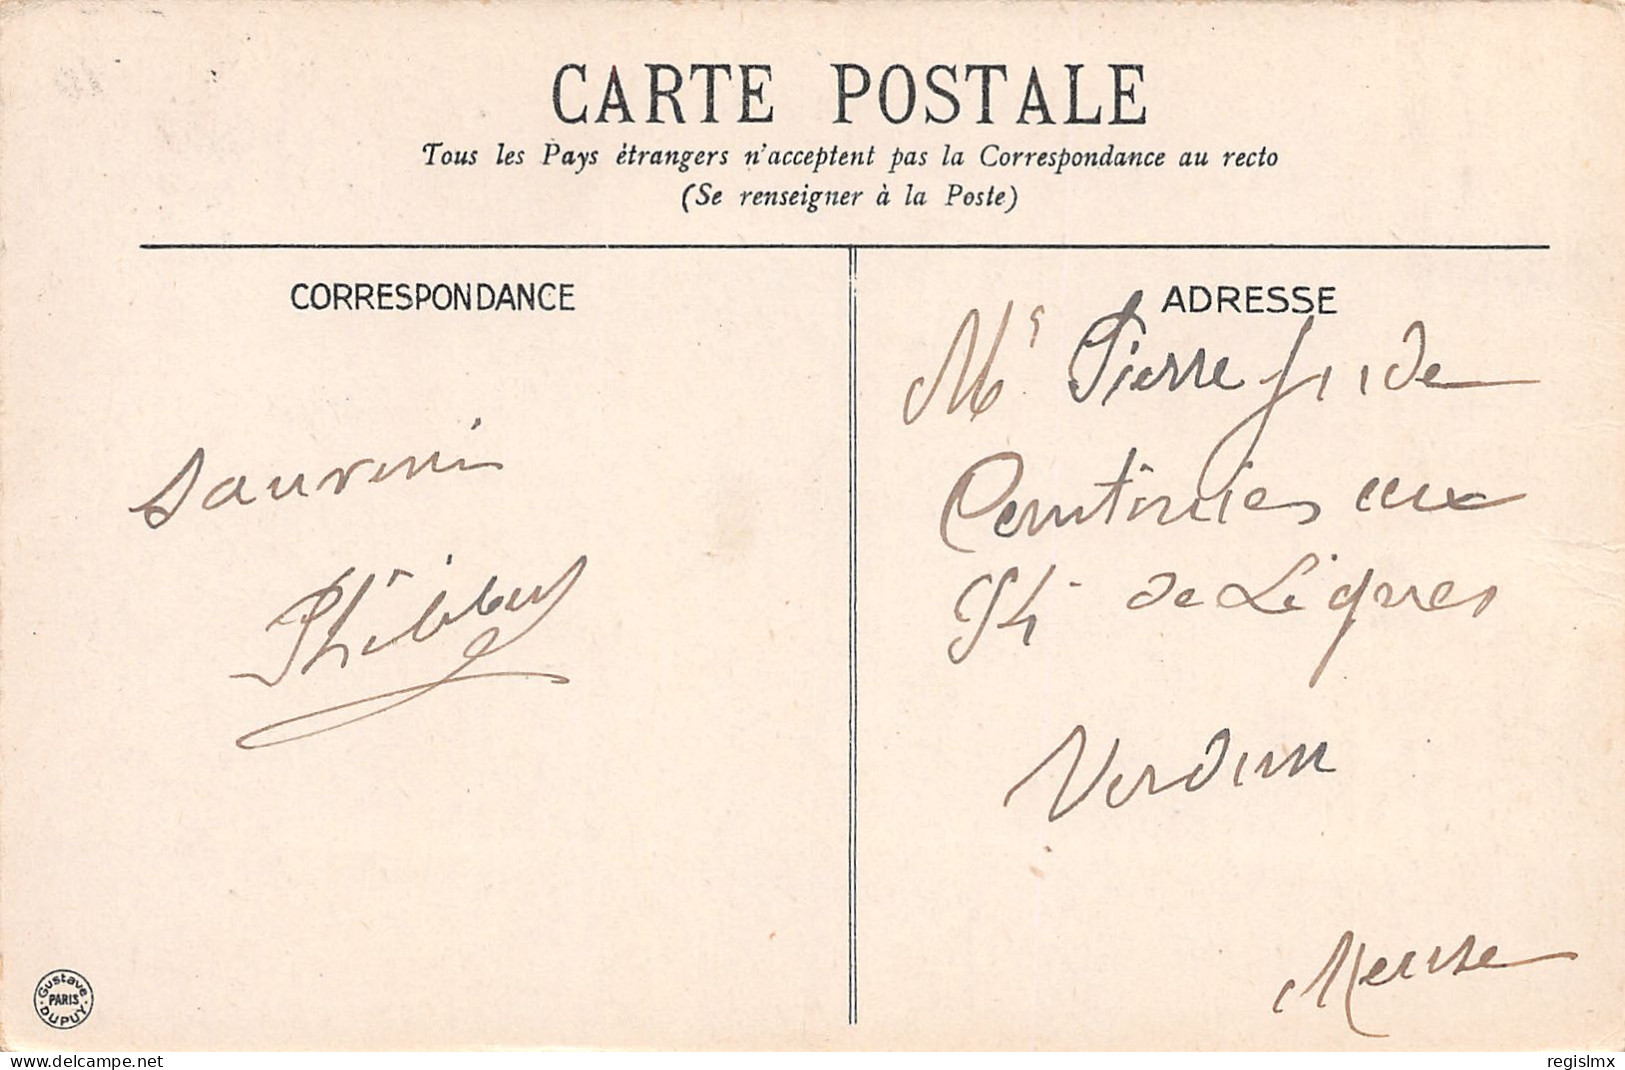 CARTE POSTALE
Tous les Pays étrangers n'acceptent pas la Correspondance au recto
(Se renseigner à la Poste)
CORRESPONDANCE
ADRESSE
Mr Pierre
Souvenir
aux
de Lignes
Verdun
Meuse
Gustave DUPUY PARIS
delcampe.net
regislmx